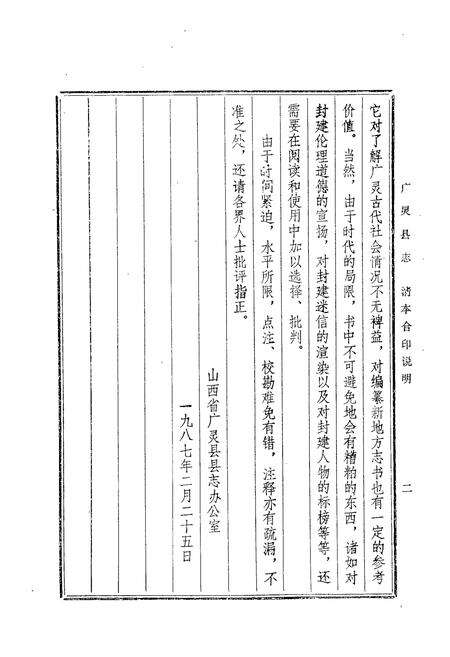 广灵县志 清本合印说明 二
它对了解广灵古代社会情况不无裨益，对编纂新地方志书也有一定的参考
价值。当然，由于时代的局限，书中不可避免地会有糟粕的东西，诸如对
封建伦理道德的宣扬，对封建迷信的渲染以及对封建人物的标榜等等，还
需要在阅读和使用中加以选择、批判。
由于时间紧迫，水平所限，点注、校勘难免有错，注释亦有疏漏，不
准之处，还请各界人士批评指正。
山西省广灵县县志办公室
一九八七年二月二十五日